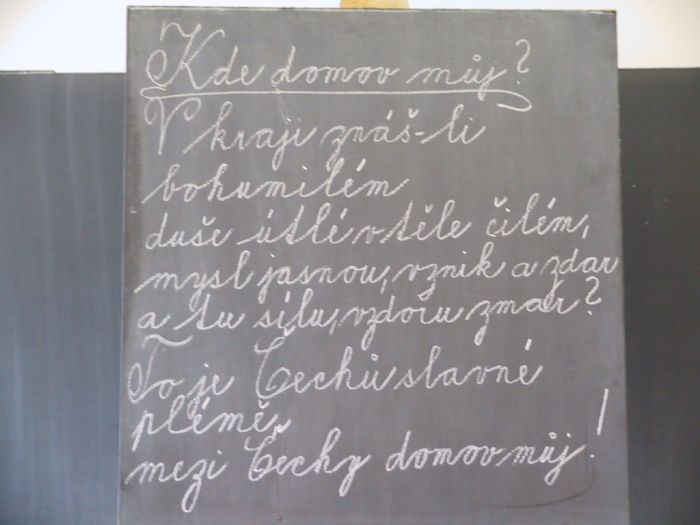 Kde domov můj?
V kraji znáš-li
bohumilém
duše útlé v těle čilém,
mysl jasnou, vznik a zdar
a tu sílu, vzdoru zmar?
To je Čechů slavné
plémě,
mezi Čechy domov můj!